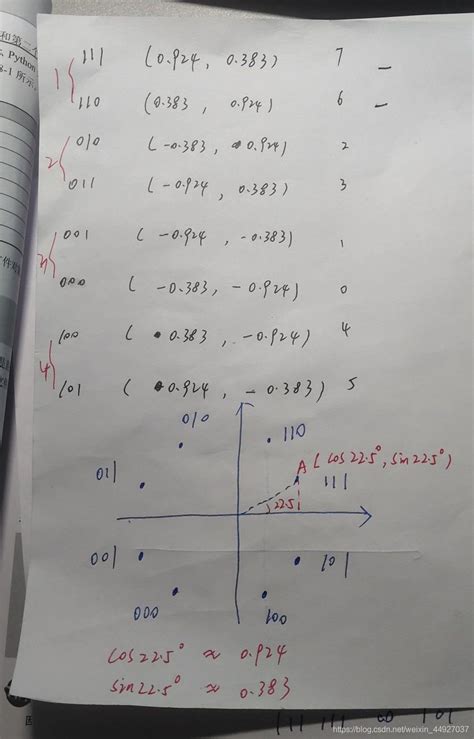 和第二个
Python
8-1 所示
1
111 (0.924, 0.383) 7 -
110 (0.383, 0.924) 6 -
2
010 (-0.383, 0.924) 2
011 (-0.924, 0.383) 3
3
001 (-0.924, -0.383) 1
000 (-0.383, -0.924) 0
4
100 (0.383, -0.924) 4
101 (0.924, -0.383) 5
010
110
A (cos22.5°, sin22.5°)
011
111
22.5
001
101
000
100
cos22.5° ≈ 0.924
sin22.5° ≈ 0.383
https://blog.csdn.net/weixin_44927037